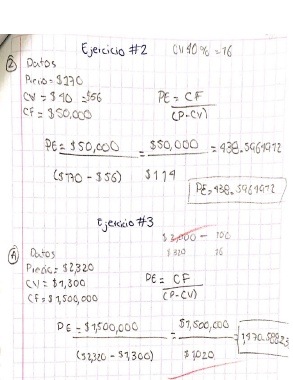 Ejercicio #2 CV 40% = 16
② Datos
Precio = $170
CV = $40 = $56 PE = CF
CF = $50,000 (P-CV)
PE = $50,000 = $50,000 = 438.5964912
($170 - $56) $114
PE = 438.5964912
Ejercicio #3
100
A Datos $320 16
Precio = $2,320
CV = $1,300 PE = CF
CF = $1,500,000 (P-CV)
PE = $1,500,000 = $1,500,000 = 1,470.58823
($2,320 - $1,300) $1020